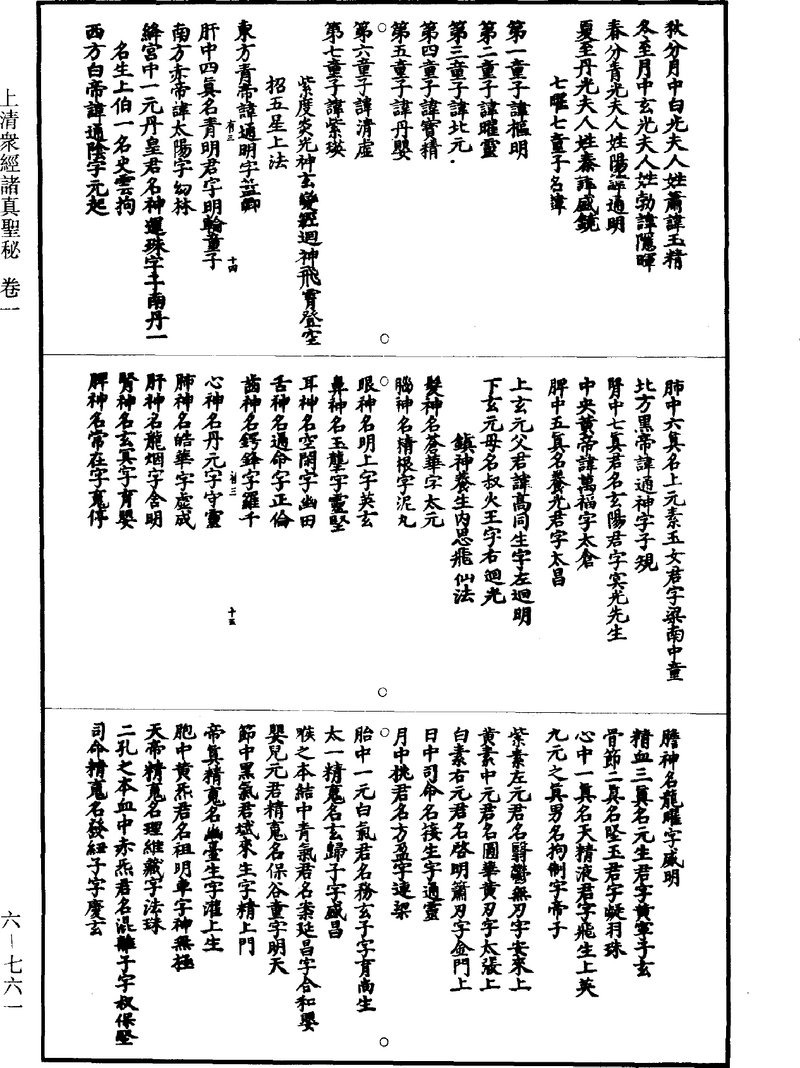 秋分月中白光夫人姓蕭諱玉精
冬至月中玄光夫人姓勃諱隱暉
春分青光夫人姓陽諱通明
夏至丹光夫人姓秦諱盛鏡
七曜七童子名諱
第一童子諱樞明
第二童子諱曜靈
第三童子諱北元
第四童子諱寶精
第五童子諱丹嬰
第六童子諱清虛
第七童子諱紫瑛
紫度炎光神玄變經迴神飛霄登空
招五星上法
東方青帝諱通明字益卿
有三
十四
肝中四真名青明君字明輪童子
南方赤帝諱太陽字幼林
絳宮中一元丹皇君名神運珠字子南丹一
名生上伯一名史雲拘
西方白帝諱通陰字元起
肺中六真名上元素玉女君字梁南中童
北方黑帝諱通神字子規
腎中七真君名玄陽君字冥光先生
中央黃帝諱萬福字太倉
脾中五真名養光君字太昌
上玄元父君諱高同生字左迴明
下玄元母名叔火王字右迴光
鎮神養生內思飛仙法
髮神名蒼華字太元
腦神名精根字泥丸
眼神名明上字英玄
鼻神名玉壟字靈堅
耳神名空閑字幽田
舌神名通命字正倫
齒神名鍔鋒字羅千
有三
十五
心神名丹元字守靈
肺神名皓華字虛成
肝神名龍烟字含明
腎神名玄冥字育嬰
脾神名常在字魂停
膽神名龍曜字威明
精血三真名元生君字黃寧子玄
骨節二真名堅玉君字凝羽珠
心中一真名天精液君字飛生上英
九元之真男名拘制字帝子
紫素左元君名翳鬱無刃字安來上
黃素中元君名圓華黃刃字太張上
白素右元君名啓明蕭刃字金門上
日中司命名接生字道靈
月中桃君名方盈字運梁
胎中一元白氣君名務玄子字育尚生
太一精魂名玄歸子字盛昌
喉之本結中青氣君名案延昌字合和嬰
嬰兒元君精魂名保谷童字明天
節中黑氣君斌來生字精上門
帝真精魂名幽臺生字灌上生
胞中黃炁君名祖明車字神無極
天帝精魂名理維藏字法珠
二孔之本血中赤炁君名混離子字叔保堅
司命精魂名發紐子字慶玄
上清眾經諸真聖秘　卷一
六—七六一